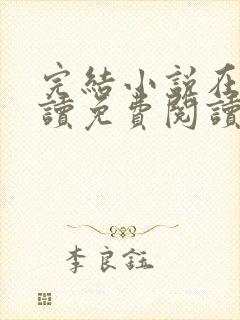 完結小說在
讀免費閱讀
李良鈺